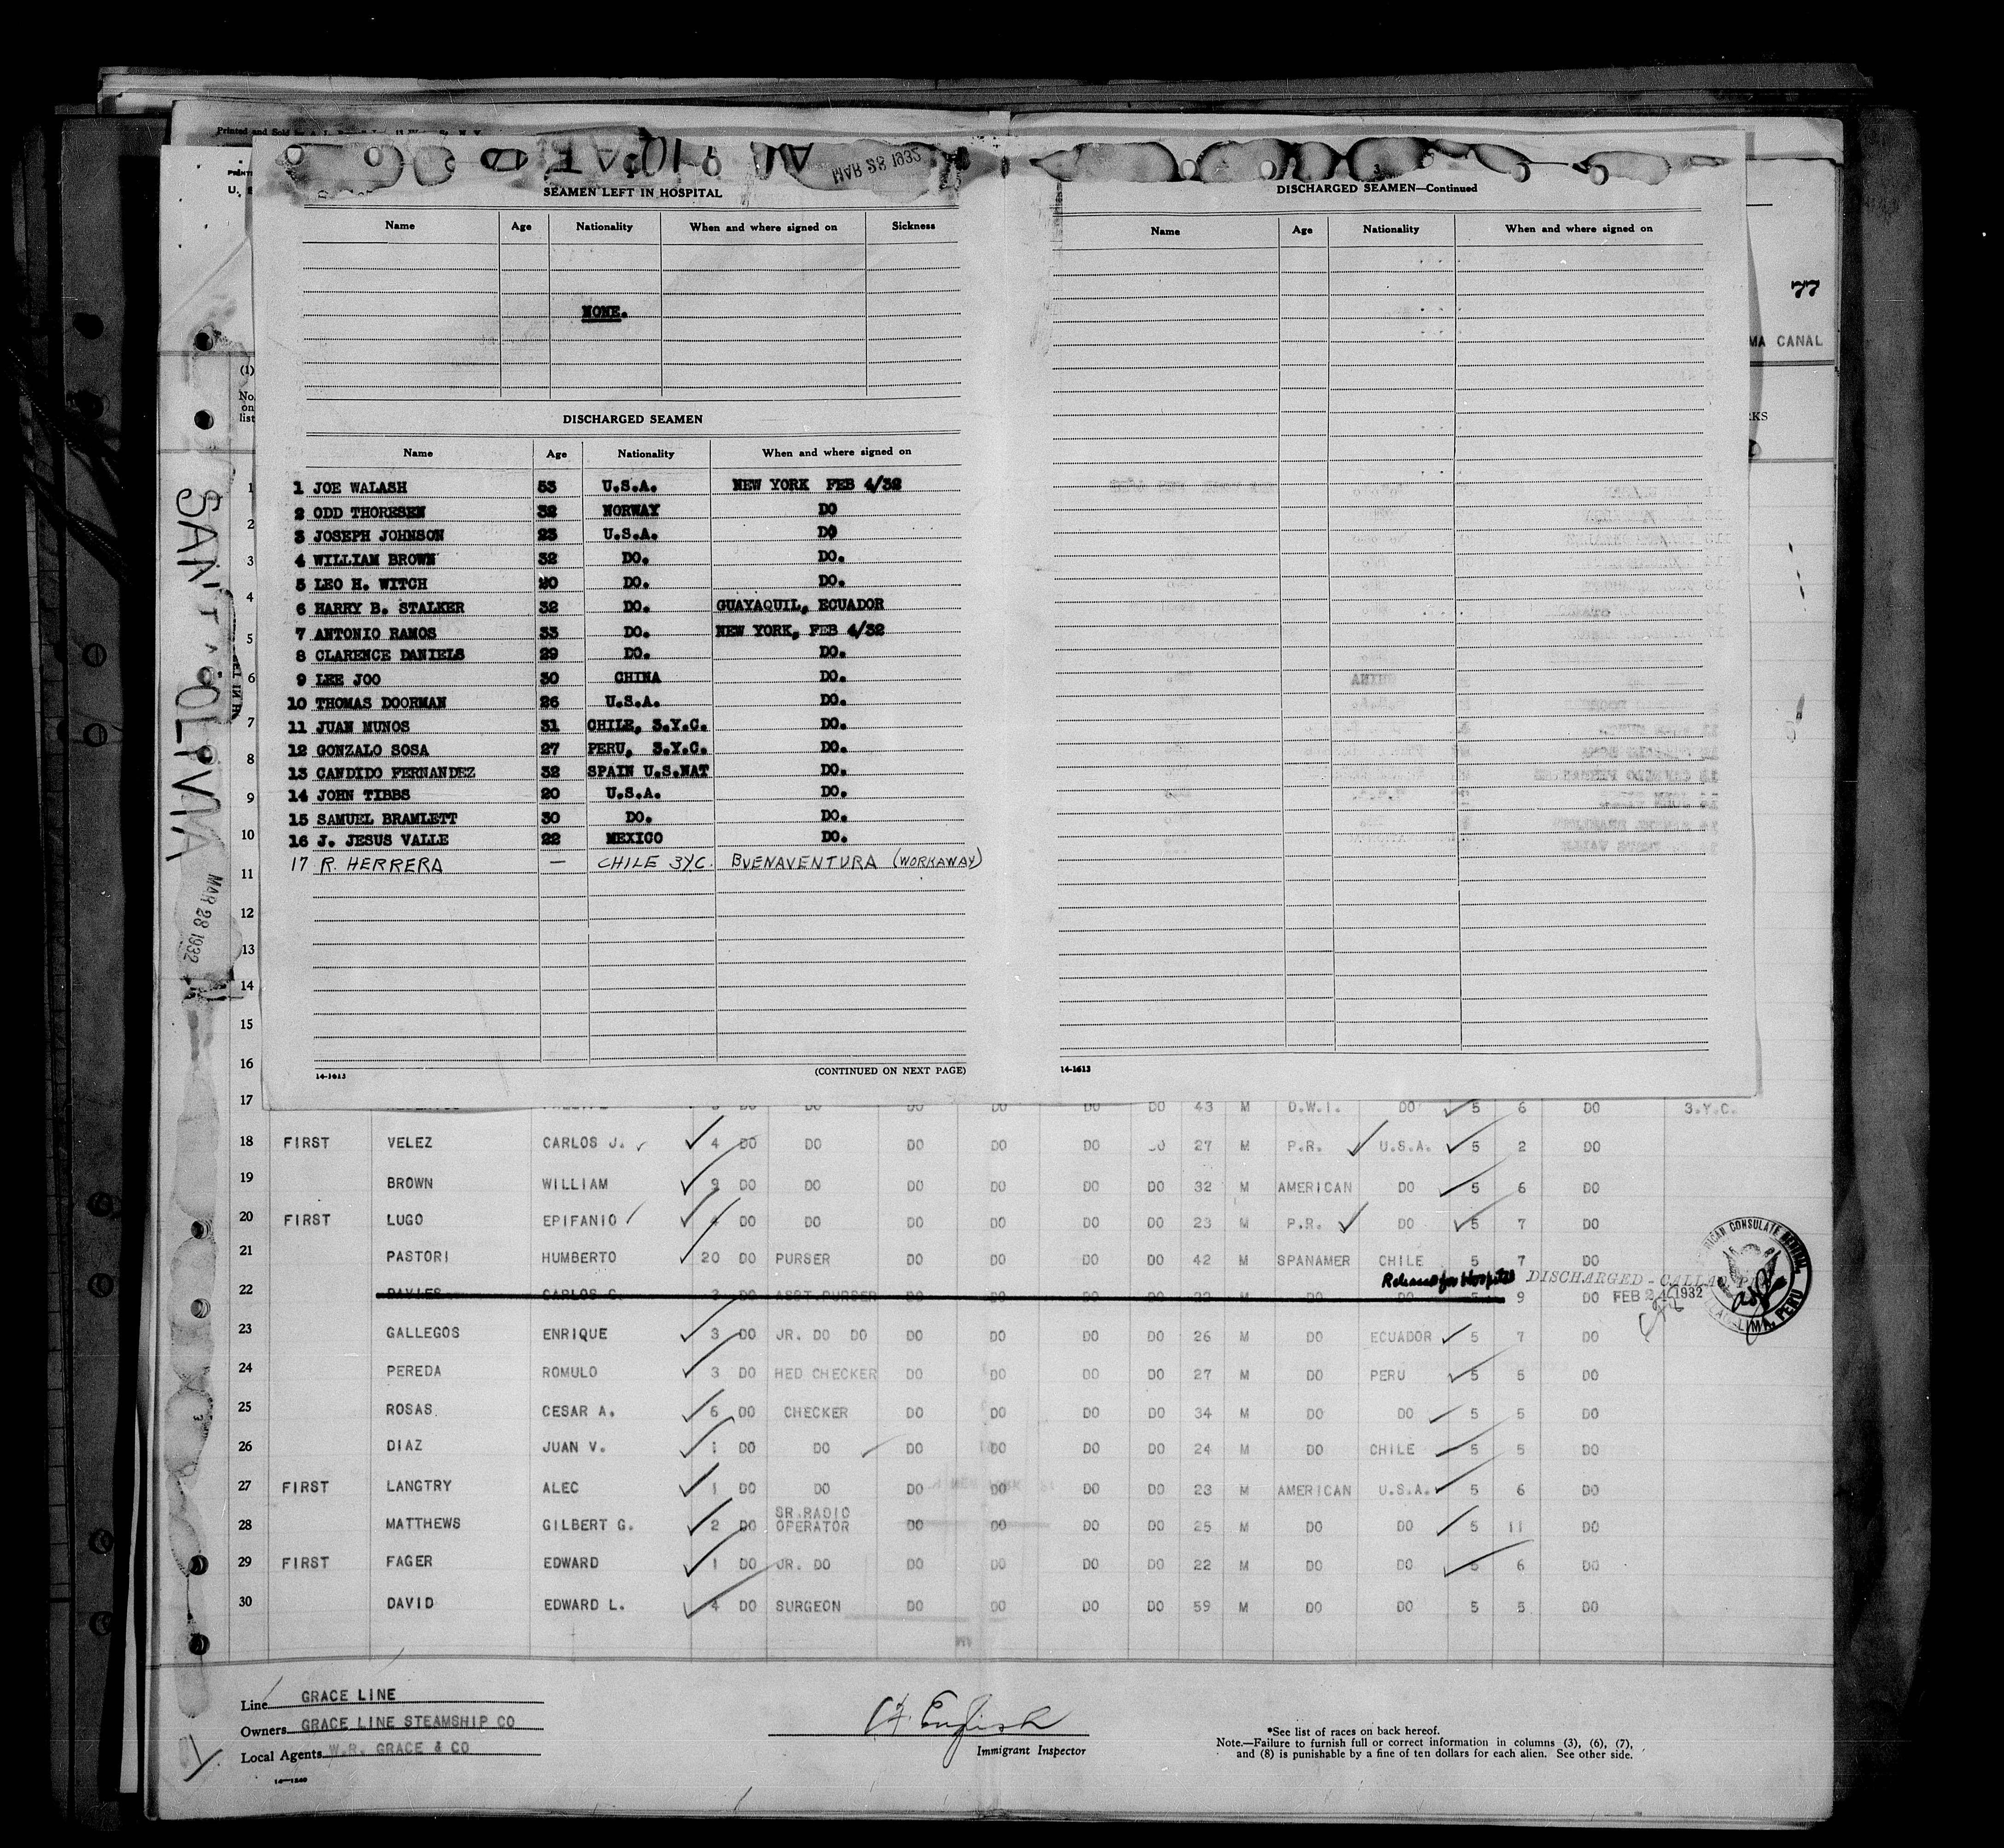 Printed and Sold by
MAR 28 1932
SEAMEN LEFT IN HOSPITAL
Name Age Nationality When and where signed on Sickness
NONE.
DISCHARGED SEAMEN
Name Age Nationality When and where signed on
1 JOE WALASH 53 U.S.A. NEW YORK FEB 4/32
2 ODD THORESEN 32 NORWAY DO
3 JOSEPH JOHNSON 23 U.S.A. DO
4 WILLIAM BROWN 32 DO. DO.
5 LEO H. WITCH 20 DO. DO.
6 HARRY B. STALKER 32 DO. GUAYAQUIL, ECUADOR
7 ANTONIO RAMOS 33 DO. NEW YORK, FEB 4/32
8 CLARENCE DANIELS 29 DO. DO.
9 LEE JOO 30 CHINA DO.
10 THOMAS DOORMAN 26 U.S.A. DO.
11 JUAN MUNOS 31 CHILE, 3.Y.C. DO.
12 GONZALO SOSA 27 PERU, 3.Y.C. DO.
13 CANDIDO FERNANDEZ 32 SPAIN U.S.NAT DO.
14 JOHN TIBBS 20 U.S.A. DO.
15 SAMUEL BRAMLETT 30 DO. DO.
16 J. JESUS VALLE 22 MEXICO DO.
17 R. HERRERA — CHILE 3YC. BUENAVENTURA (WORKAWAY)
14-1613 (CONTINUED ON NEXT PAGE)
DISCHARGED SEAMEN—Continued
Name Age Nationality When and where signed on
14-1613
77
MA CANAL
RKS
(1)
No.
on
list
1
2
3
4
5
6
7
8
9
10
11
12
13
14
15
16
SANTA OLIVIA
MAR 28 1932
17 DO DO DO DO DO DO 43 M D.W.I. DO 5 6 DO 3.Y.C.
18 FIRST VELEZ CARLOS J. 4 DO DO DO DO DO 27 M P.R. U.S.A. 5 2 DO
19 BROWN WILLIAM 9 DO DO DO DO DO DO 32 M AMERICAN DO 5 6 DO
20 FIRST LUGO EPIFANIO 4 DO DO DO DO DO DO 23 M P.R. DO 5 7 DO
21 PASTORI HUMBERTO 20 DO PURSER DO DO DO DO 42 M SPANAMER CHILE 5 7 DO
22 DAVIES CARLOS C. 3 DO ASST.PURSER 9 DO
DISCHARGED - CALLAO
FEB 24 1932
AMERICAN CONSULATE GENERAL
CALLAO-LIMA, PERU
23 GALLEGOS ENRIQUE 3 DO JR. DO DO DO DO DO DO 26 M DO ECUADOR 5 7 DO
24 PEREDA ROMULO 3 DO HED CHECKER DO DO DO DO 27 M DO PERU 5 5 DO
25 ROSAS CESAR A. 6 DO CHECKER DO DO DO DO 34 M DO DO 5 5 DO
26 DIAZ JUAN V. 1 DO DO DO DO DO DO 24 M DO CHILE 5 5 DO
27 FIRST LANGTRY ALEC 1 DO DO DO DO DO DO 23 M AMERICAN U.S.A. 5 6 DO
28 MATTHEWS GILBERT G. 2 DO SR.RADIO OPERATOR DO DO DO DO 25 M DO DO 5 11 DO
29 FIRST FAGER EDWARD 1 DO JR. DO DO DO DO DO 22 M DO DO 5 6 DO
30 DAVID EDWARD L. 4 DO SURGEON DO DO DO DO 59 M DO DO 5 5 DO
Line GRACE LINE
Owners GRACE LINE STEAMSHIP CO
Local Agents W.R. GRACE & CO
English
Immigrant Inspector
*See list of races on back hereof.
Note.—Failure to furnish full or correct information in columns (3), (6), (7),
and (8) is punishable by a fine of ten dollars for each alien. See other side.